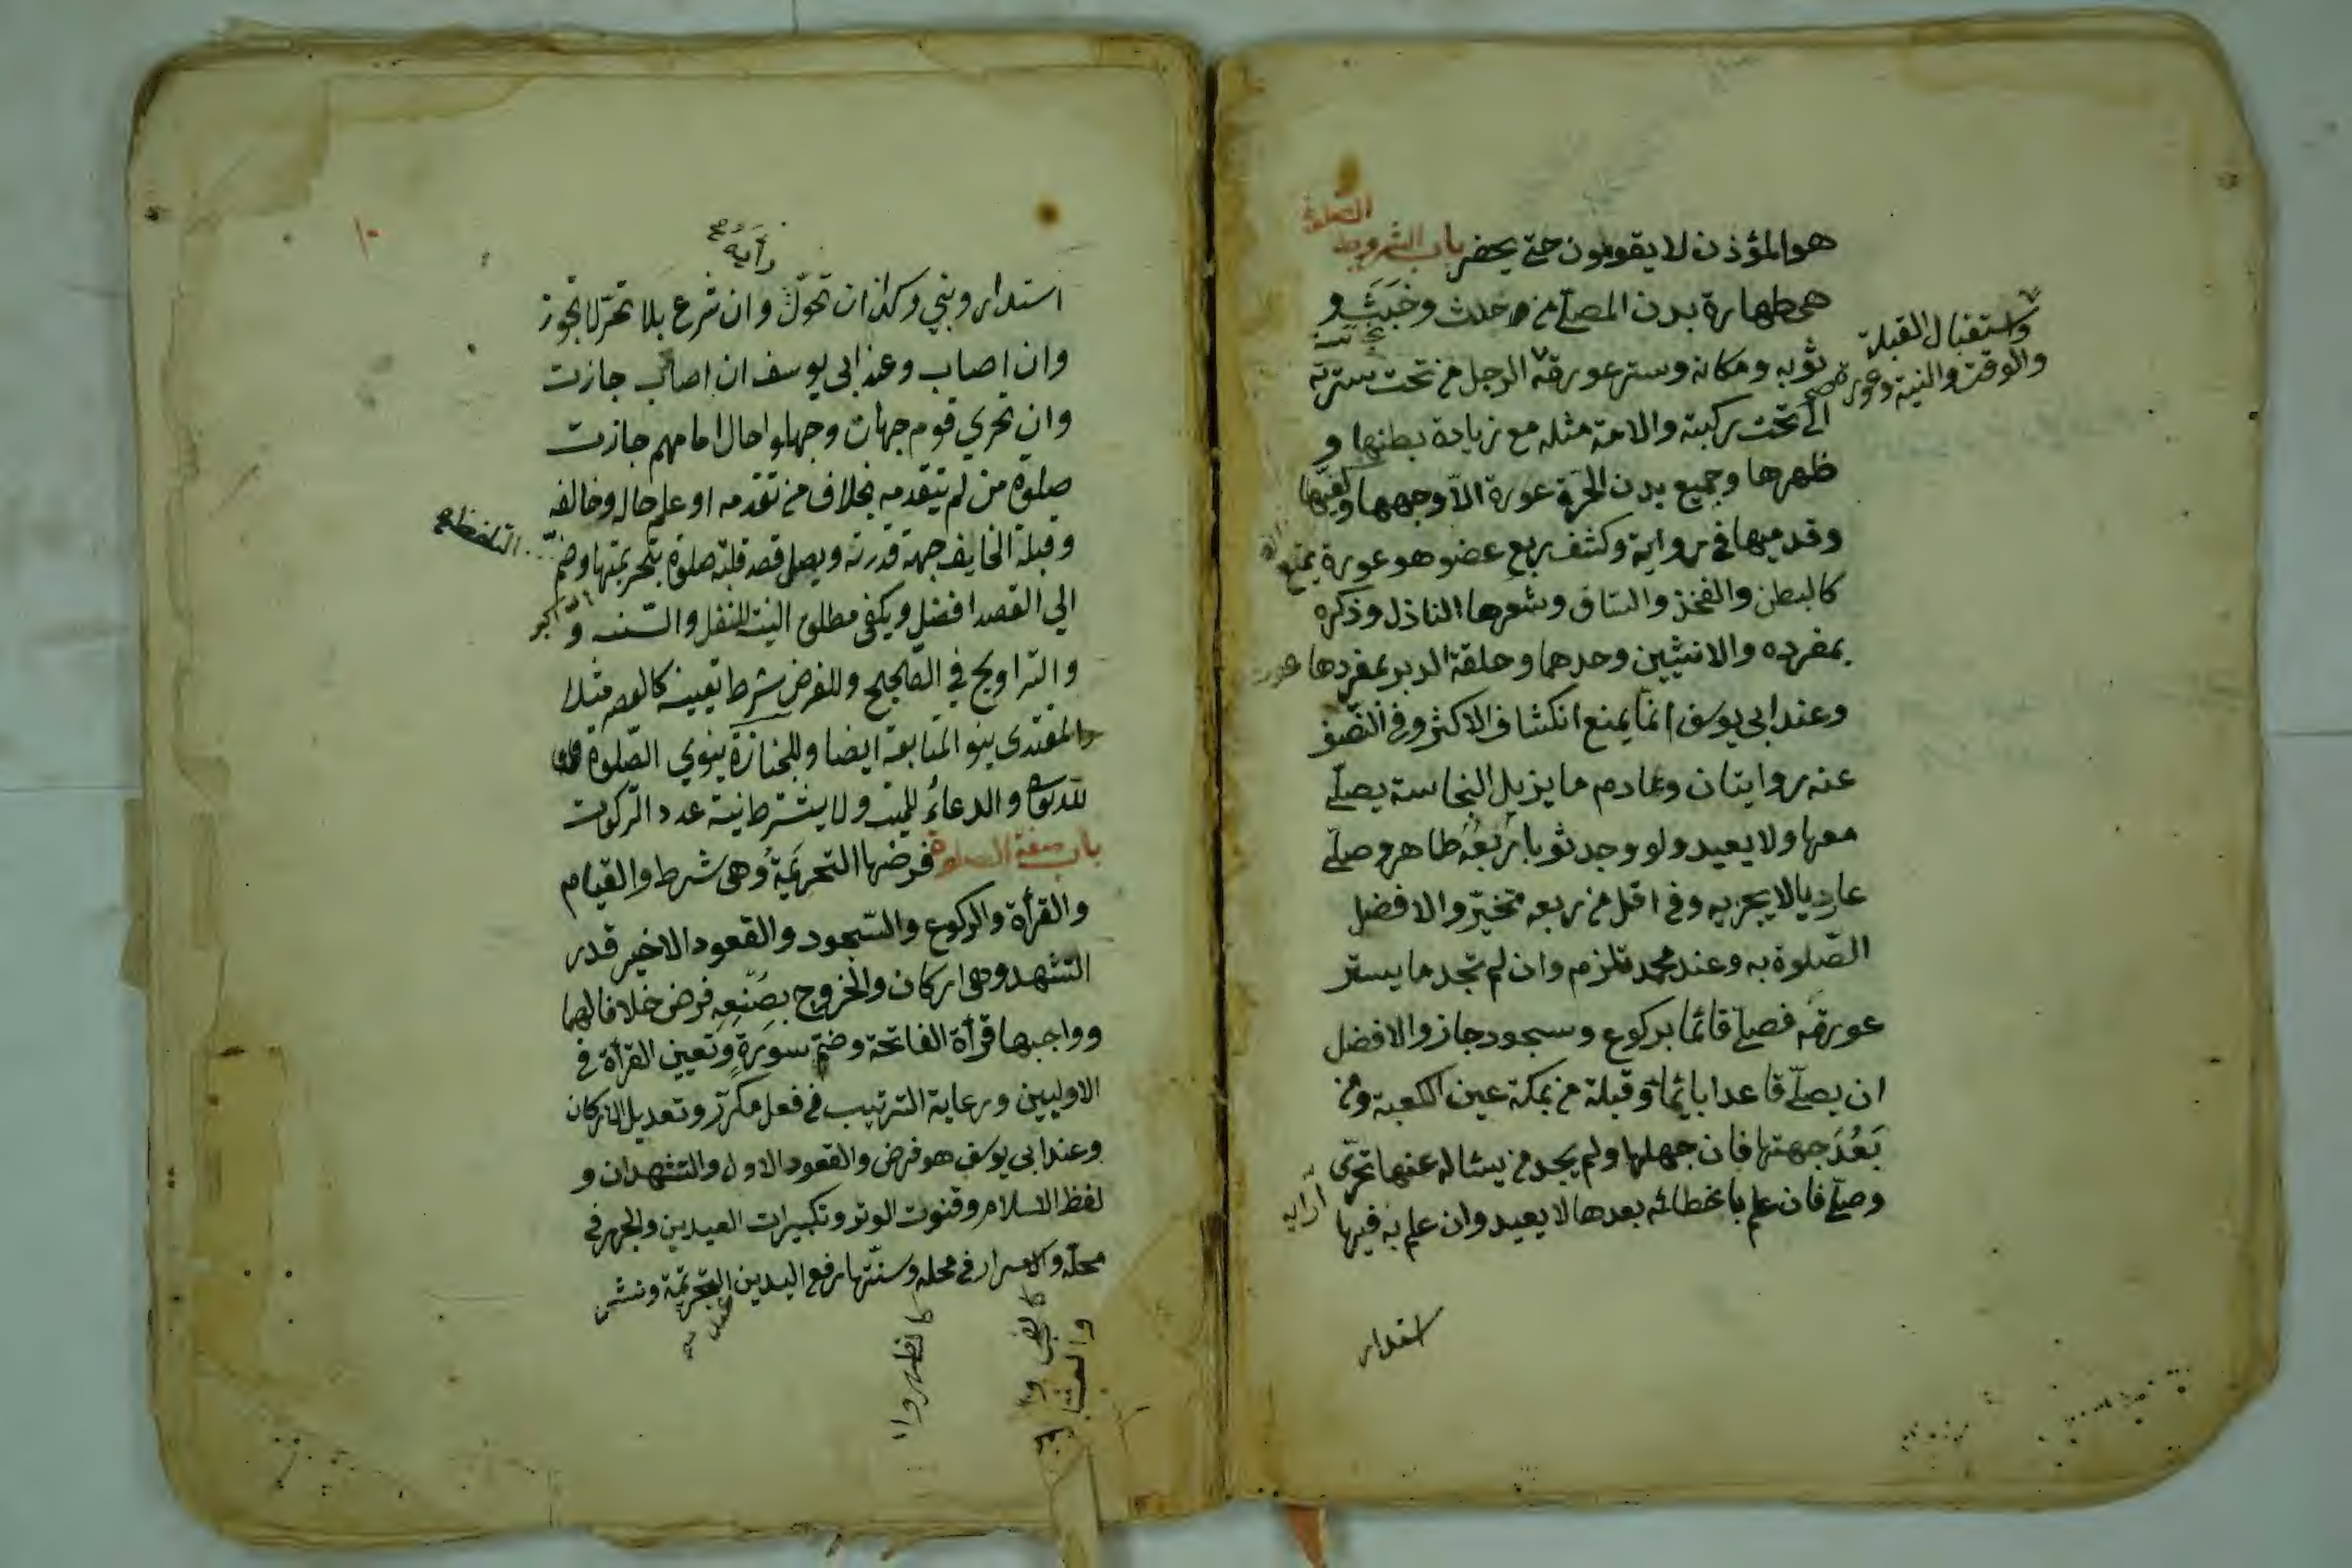 هو المؤذن لا يقومون حتى يحضر باب الشروط
الصلوة
هى طهارة بدن المصلّے من حدث وخَبَثٍ و
ثوبه ومكانه وستر عورته الرجل من تحت سترته
واستقبال القبلة
والوقت والنية وعورة صح
الے تحت ركبته والامة مثله مع زيادة بطنها و
ظهرها وجميع بدن الحرّة عورة الاّ وجهها وكفيها
وقدميها فى رواية وكشف ربع عضو هو عورة يمنع
كالبطن والفخذ والساق وشعرها الناذل وذكره
بمفرده والانثيين وحدهما وحلقة الدبر بمفردها
وعند ابى يوسف انّما يمنع انكشاف الاكثر وفى النّصف
عنه روايتان وعادم ما يزيل النجاسة يصلّے
معها ولا يعيد ولو وجد ثوبا رُبعُه طاهر وصلّے
عاريا لا يجزيه وفى اقل من ربعه مخيّر والافضل
الصّلوة به وعند محمد تلزم وان لم تجد ما يستر
عورته فصلّے قائما بركوع وسجود جاز والافضل
ان يصلّے قاعدا بايماءٍ وقبلة من بمكة عين الكعبة ومن
بَعُدَ جهتها فان جهلها ولم يجد من يساله عنها تحرّى
وصلّے فان علم باخطائه بعدها لا يعيد وان علم به فيها
استدار
١٠
رأيه صح
استدار وبنى وكذا ان تحوّل وان شرع بلا تحرّ لا تجوز
وان اصاب وعند ابى يوسف ان اصاب جازت
وان تحرى قوم جهات وجهلوا حال امامهم جازت
صلوة من لم يتقدمه بخلاف من تقدمه او علم حاله وخالفه
وقبلة الخايف جهة قدرته ويصل قصد قلبه صلوة بتحريمتها وضمّ
التلفظ صح
الي القصد افضل ويكفى مطلق النية للنفل والسنه و
والتراويح في الصّحيح وللفرض شرط تعيينه كالعصر مثلا
والمقتدى ينو المتابعة ايضا وللجنازة ينوي الصّلوة
لله والدعاءُ للميت ولا يشترط نية عدد الرّكعات
باب صفة الصلوة فرضها التحريمةُ وهى شرط والقيام
والقرأة والركوع والسّجود والقعود الاخير قدر
التشهد وهى اركان والخروج بصُنعِه فرض خلافا لهما
وواجبها قرأة الفاتحة وضمّ سورةٍ وتعيين القرأة فى
الاوليين ورعاية الترتيب فى فعل مكرّر وتعديل الاركان
وعند ابى يوسف هو فرض والقعود الاول والتشهدان و
لفظ الاسلام وقنوت الوتر وتكبيرات العيدين والجهر فى
محلّه والاسرار فى محله وسنّتها رفع اليدين للتحريمة ونشر